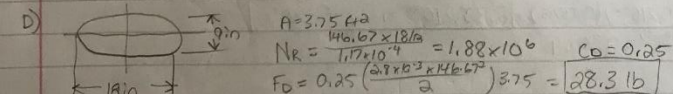 D)
9in
18in
A=3.75 ft2
NR = 146.67×18/12 / 1.17×10^-4 = 1.88×10^6 CD=0.25
FD = 0.25 (2.8×10^-3 × 146.67^2 / 2) 3.75 = 28.3 lb